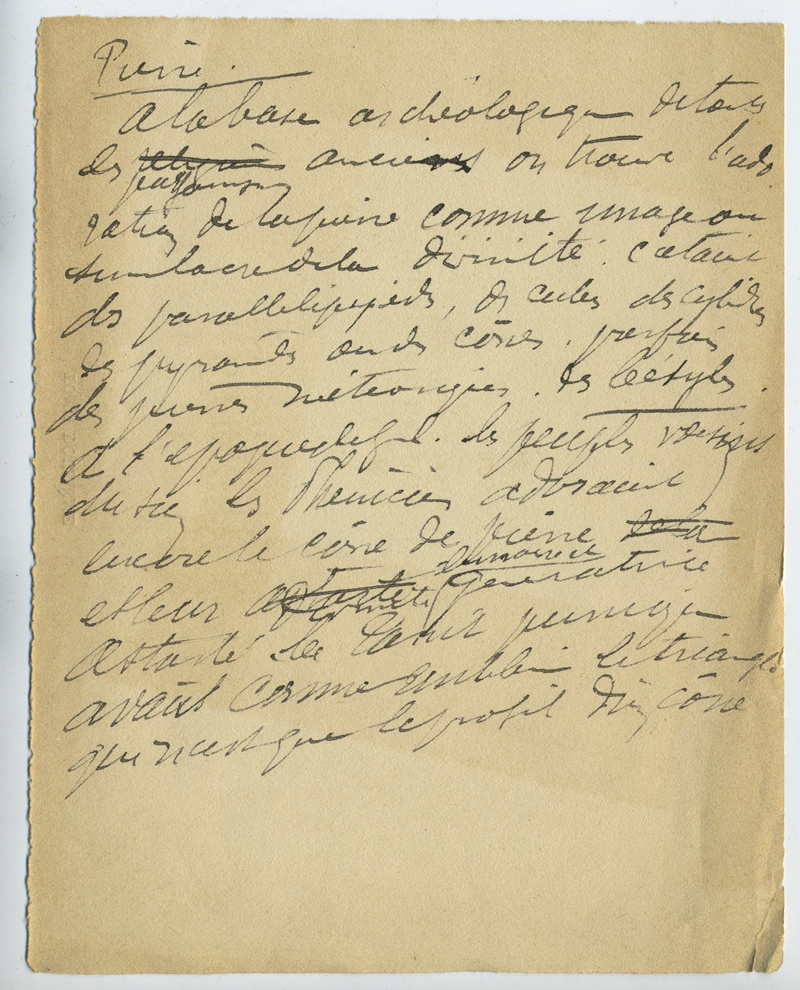 Pierre.
A la base archéologique de toutes
les ~~religions~~ anciens on trouve l'ado
paganismes
ration de la pierre comme image ou
simulacre de la divinité. c'etait
des parallelipipèds, des cubes des cylindres
des pyramides ou des cônes. parfois
des pierres météoriques. les bétyles.
A l'epoque de
les peuples voisins
les Phéniciens adoraient
encore le cône de pierre ~~de la~~
et leur ~~astarté~~ generatrice
Astarté la Tanit punique
avait comme emblème le triangle
qui n'est que le profil d'un cône